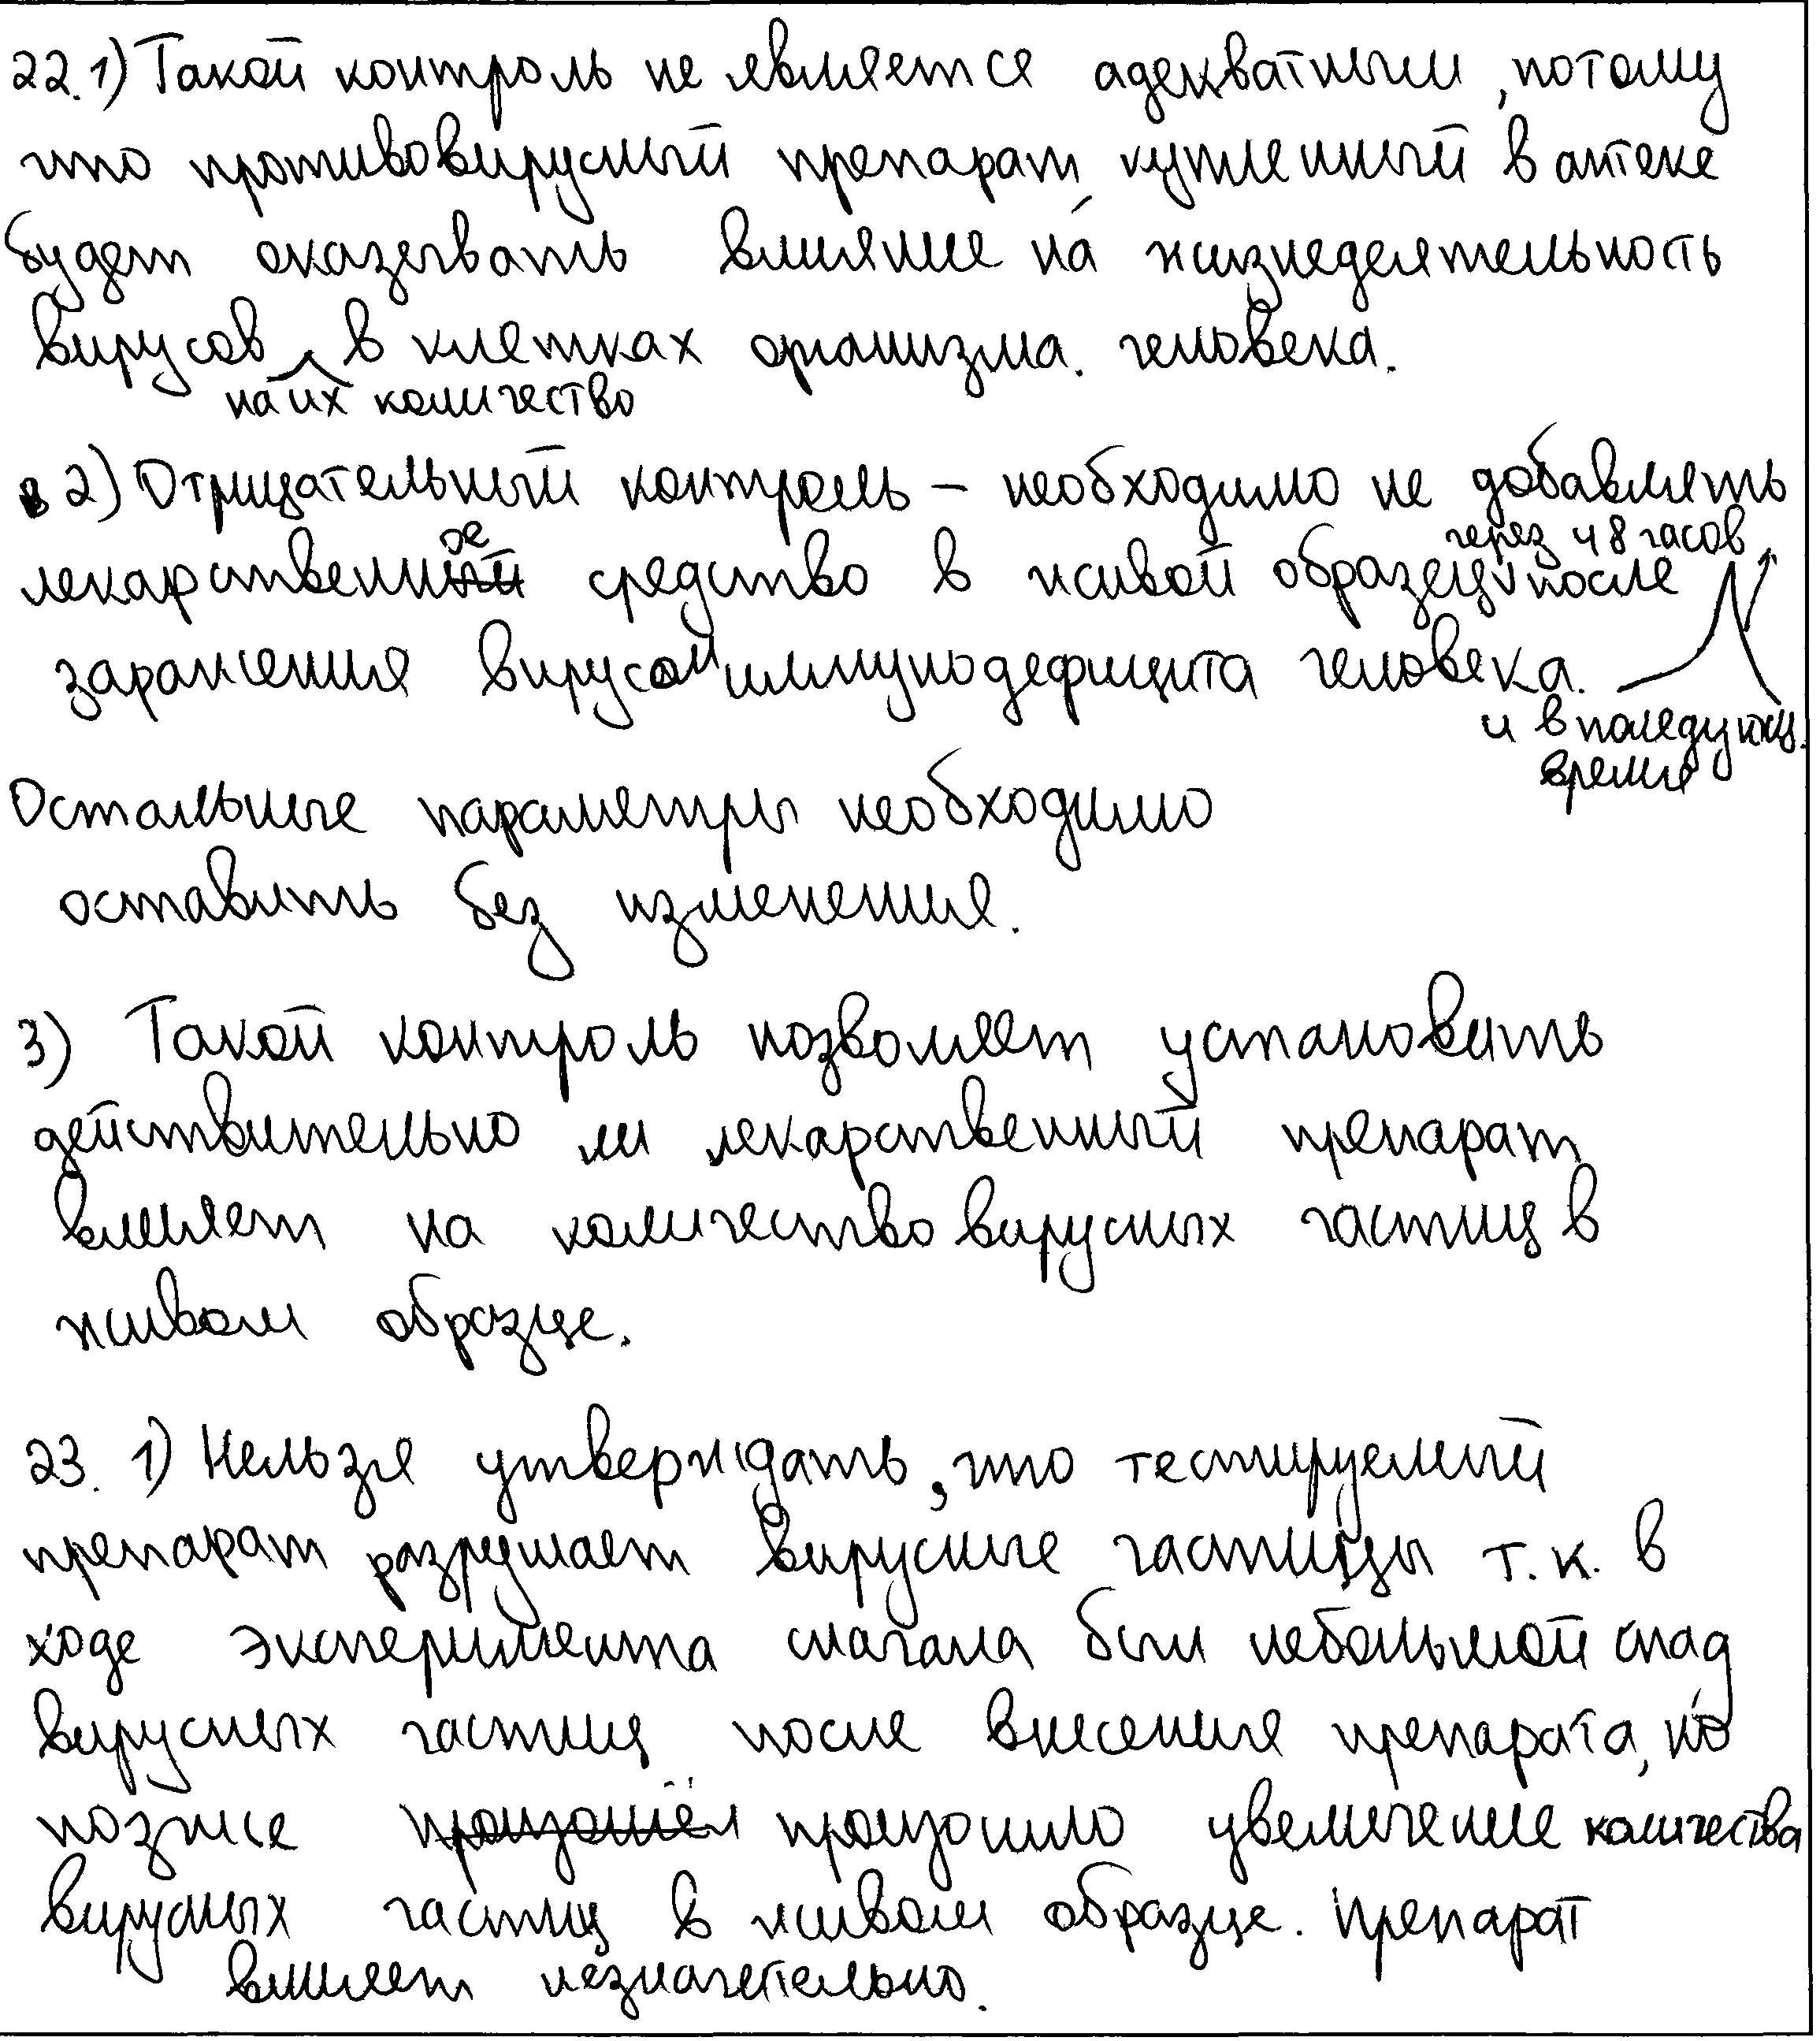 22.1) Такой контроль не является адекватным, потому
что противовирусный препарат, купленный в аптеке
будет оказывать влияние на жизнедеятельность
вирусов в клетках организма. человека.
на их количество
2) Отрицательный контроль – необходимо не добавлять
через 48 часов
лекарственное средство в живой образец после
заражения вирусом иммунодефицита человека.
и в последующ.
время
Остальные параметры необходимо
оставить без изменения.
3) Такой контроль позволяет установить
действительно ли лекарственный препарат
влияет на количество вирусных частиц в
живом образце.
23. 1) Нельзя утверждать, что тестируемый
препарат разрушает вирусные частицы т.к. в
ходе эксперимента сначала был небольшой спад
вирусных частиц после внесения препарата, но
позже произошёл произошло увеличение количества
вирусных частиц в живом образце. Препарат
влияет незначительно.